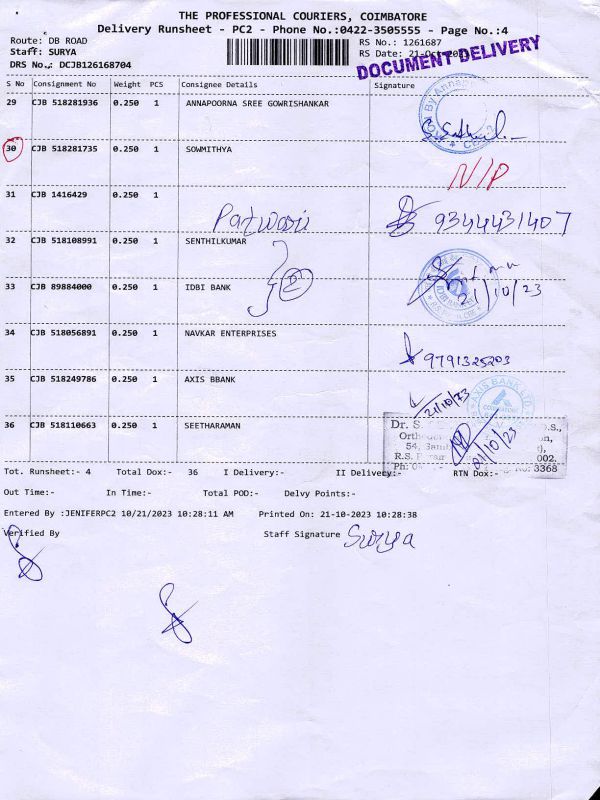 THE PROFESSIONAL COURIERS, COIMBATORE
Delivery Runsheet - PC2 - Phone No.:0422-3505555 - Page No.:4
Route: DB ROAD
RS No.: 1261687
Staff: SURYA
RS Date: 21-Oct-2023
DRS No.: DCJB126168704
DOCUMENT DELIVERY
S No Consignment No Weight PCS Consignee Details Signature
29 CJB 518281936 0.250 1 ANNAPOORNA SREE GOWRISHANKAR
30 CJB 518281735 0.250 1 SOWMITHYA N/P
31 CJB 1416429 0.250 1
Patwari 9344431407
32 CJB 518108991 0.250 1 SENTHILKUMAR
33 CJB 89884000 0.250 1 IDBI BANK 21/10/23
34 CJB 518056891 0.250 1 NAVKAR ENTERPRISES
9791325203
35 CJB 518249786 0.250 1 AXIS BBANK
21/10/23
AXIS BANK LTD
36 CJB 518110663 0.250 1 SEETHARAMAN
Dr. S.
54,
R.S.
002.
Ph: No: 3368
Tot. Runsheet:- 4 Total Dox:- 36 I Delivery:- II Delivery:- RTN Dox:-
Out Time:- In Time:- Total POD:- Delvy Points:-
Entered By :JENIFERPC2 10/21/2023 10:28:11 AM Printed On: 21-10-2023 10:28:38
Verified By Staff Signature Surya